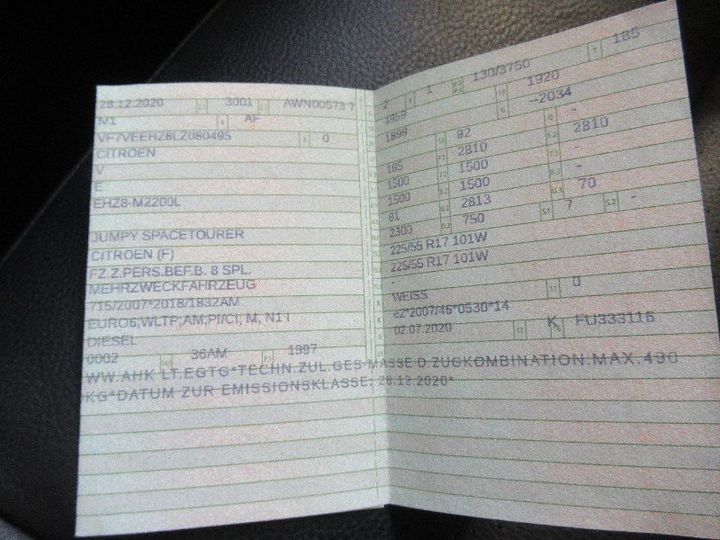 28.12.2020 3001 AWN00573 7
M1 AF
VF7VEEHZ8LZ080495 0
CITROEN
V
E
EHZ8-M2200L
JUMPY SPACETOURER
CITROEN (F)
FZ.Z.PERS.BEF.B. 8 SPL.
MEHRZWECKFAHRZEUG
715/2007*2018/1832AM
EURO6;WLTP;AM;PI/CI, M, N1 I
DIESEL
0002 36AM 1997
2 1 130/3750 185
4959 1920
1899 —2034
-
195 92 2810
1500 2810 -
1500 1500 -
81 1500 70
2300 2813 7 -
750
225/55 R17 101W
225/55 R17 101W
-
WEISS 0
e2*2007/46*0530*14
02.07.2020 K FU333116
WW.AHK LT.EGTG*TECHN.ZUL.GES-MASSE D.ZUGKOMBINATION:MAX.490
KG*DATUM ZUR EMISSIONSKLASSE: 28.12.2020*